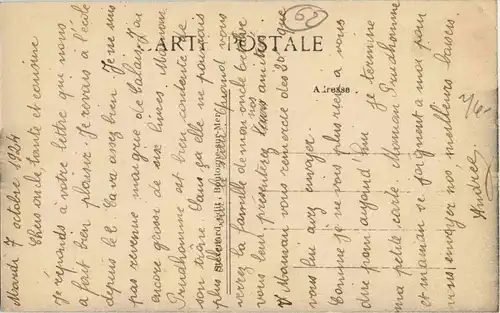 Mardi 7 octobre 1924
Chers oncle tante et cousine
Je réponds à votre lettre qui nous
a fait bien plaisir. Je revais à l'école
depuis le 2. Ca va assez bien. Je ne suis
pas revenue maigrie de Calais, j'ai
encore gagné de six livres. Maman
Prudhomme est bien contente de
son trône. Sans ça elle ne pourrais
plus quand vous
verrez la famille de mon oncle
vous leur présenterez nos amitiés
Maman vous remercie des 20 que
vous lui avez envoyer.
Comme je ne vois plus rien a vous
dire pour aujourd'hui je termine
ma petite carte. Maman Prudhomme
et maman se joignent a moi pour
vous envoyer nos meilleurs baisers.
Andrée
CARTE POSTALE
Adresse
62